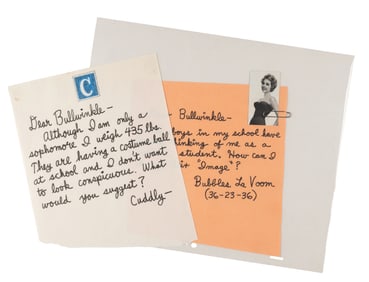 C
Dear Bullwinkle—
Although I am only a
sophomore I weigh 435 lbs.
They are having a costume ball
at school and I don't want
to look conspicuous. What
would you suggest?
Cuddly—
Bullwinkle—
boys in my school have
thinking of me as a
student. How can I
"Image"?
Bubbles La Voom
(36-23-36)